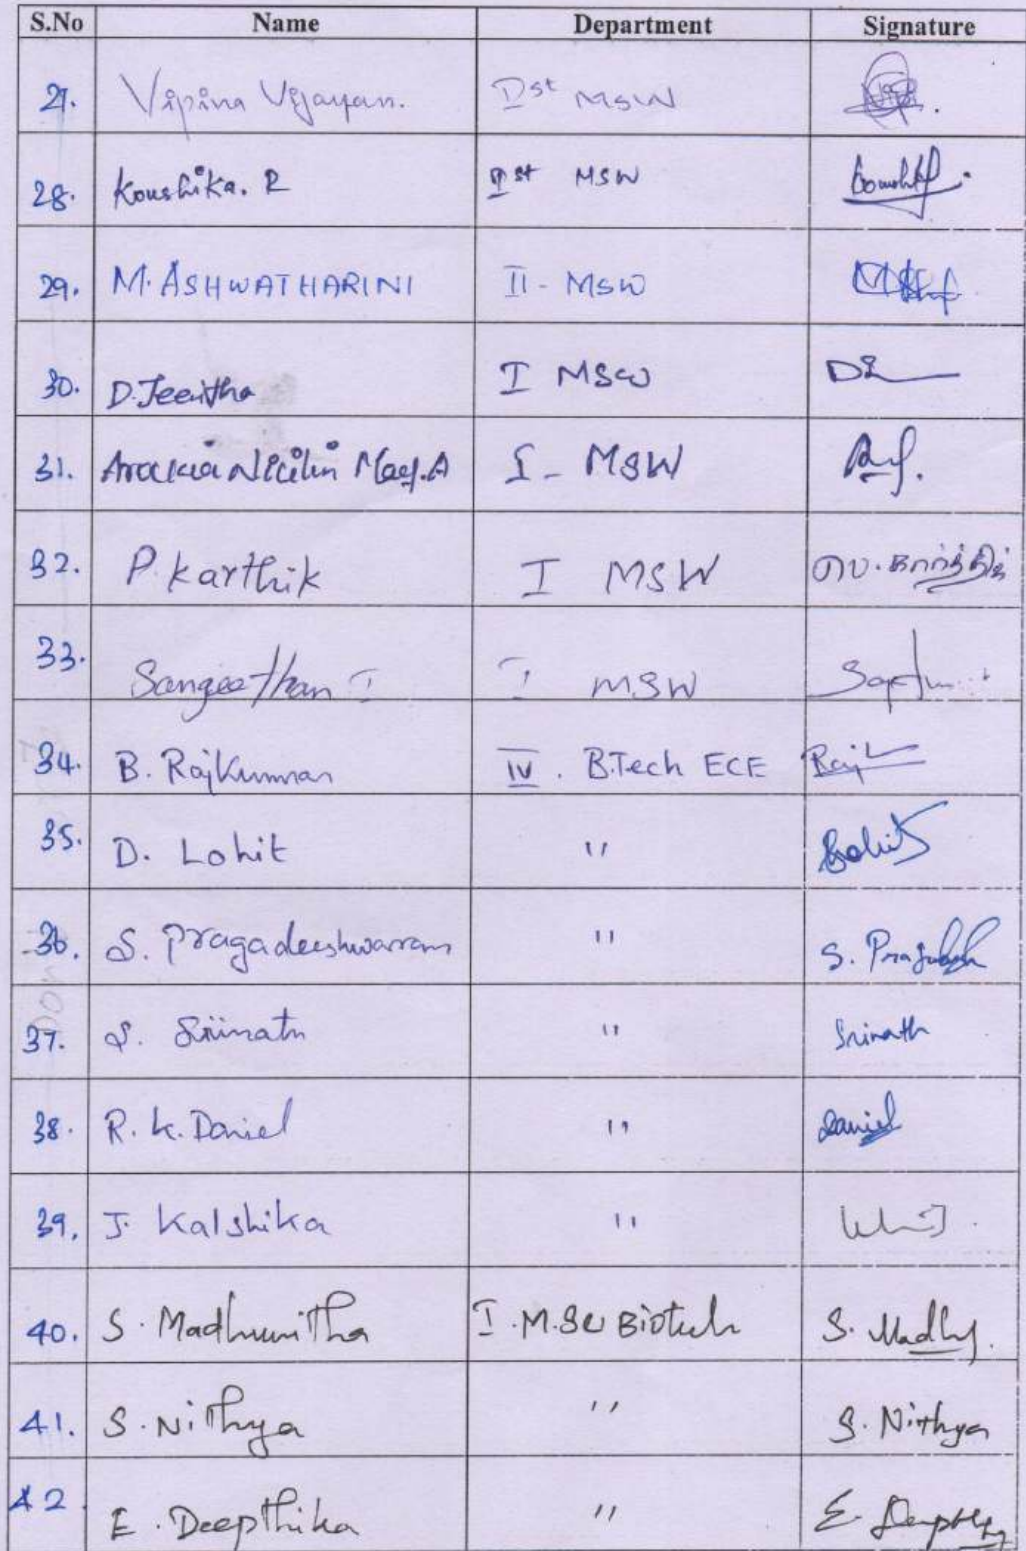 S.No Name Department Signature
27. Vipina Vijayan. Ist MSW
28. Koushika. R Ist MSW
29. M. ASHWATHARINI II - MSW
30. D. Jeevitha I MSW D
31. A I - MSW
32. P. Karthik I MSW பெ. கார்த்திக்
33. Sangeethan I I MSW
34. B. RajKumar IV. B.Tech ECE Raj
35. D. Lohit " Lohit
36. S. Pragadeeshwaran "
37. S. Srinath " Srinath
38. R. K. Daniel " Daniel
39. J. Kalshika "
40. S. Madhumitha I. M.Sc Biotech S. Madhu
41. S. Nithya " S. Nithya
42 E. Deepthika "